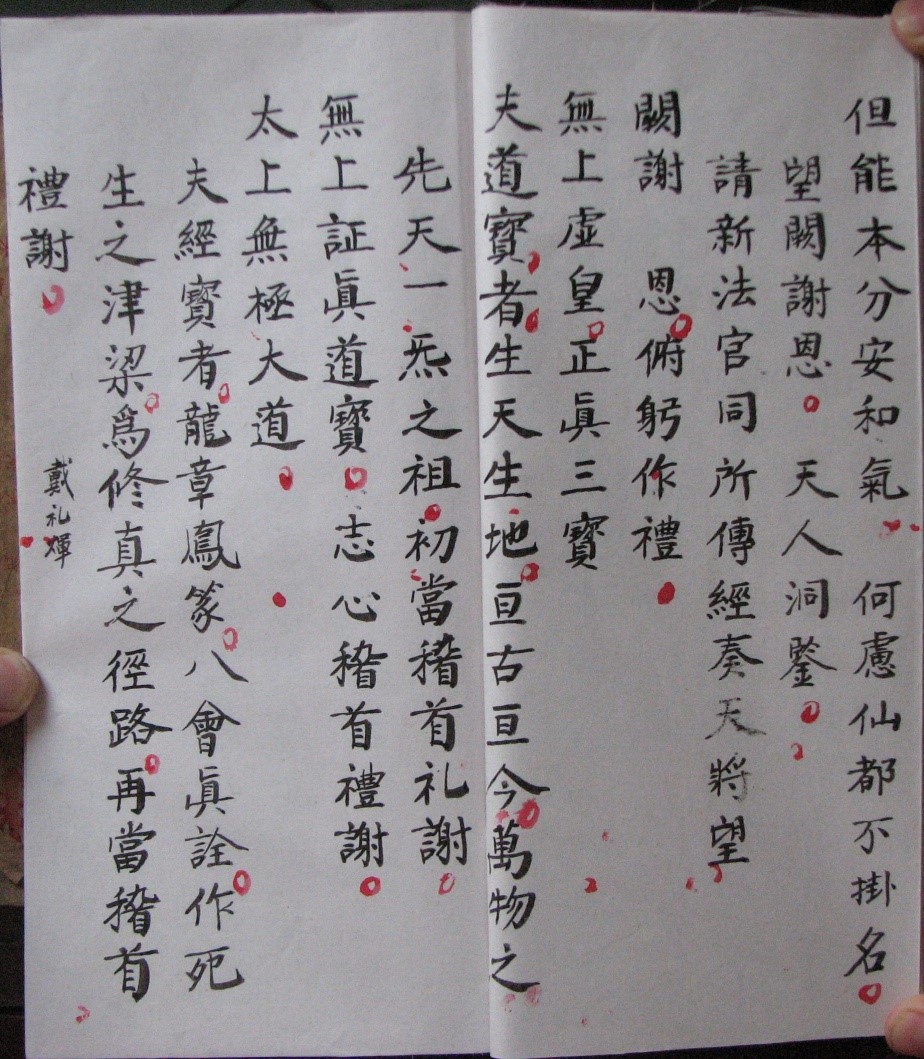 但能本分安和氣何慮仙都不掛名
望闕謝恩天人洞鑒
請新法官同所傳經奏天將望
闕謝恩俯躬作禮
無上虛皇正眞三寶
夫道寶者生天生地亘古亘今萬物之
先天一炁之祖初當稽首礼謝
無上証眞道寶志心稽首禮謝
太上無極大道
夫經寶者龍章鳳篆八會眞詮作死
生之津梁爲修真之徑路再當稽首
禮謝
戴礼輝